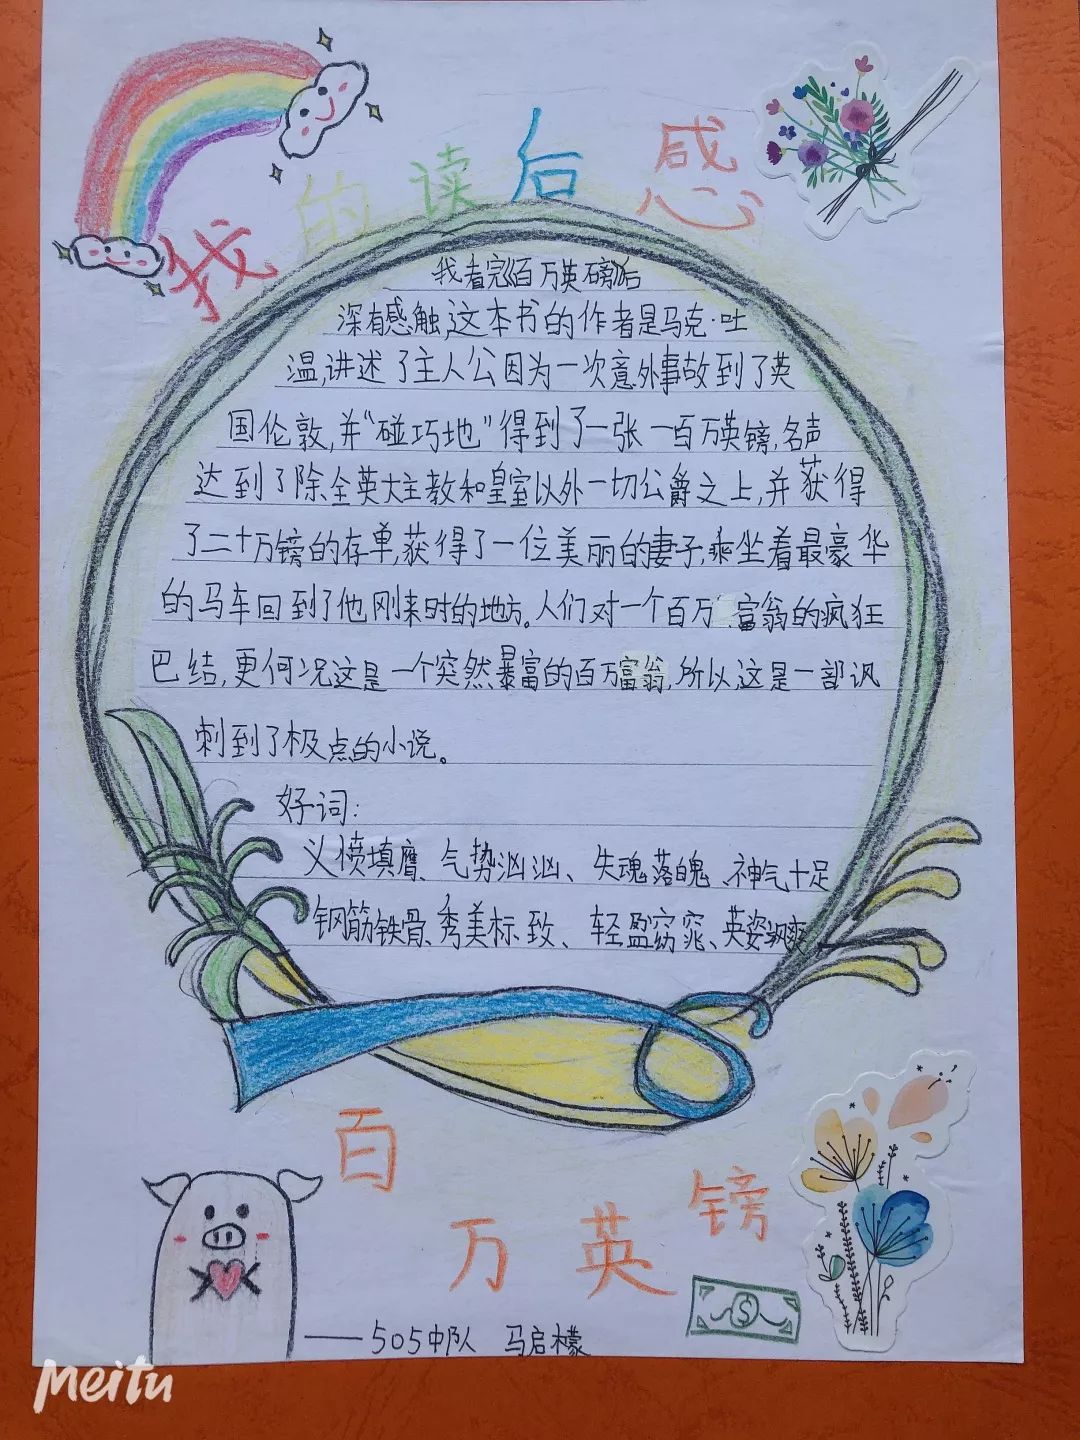 我的读后感
我看完《百万英磅》后
深有感触,这本书的作者是马克·吐
温,讲述了主人公因为一次意外事故到了英
国伦敦,并“碰巧地”得到了一张一百万英镑,名声
达到了除全英大主教和皇室以外一切公爵之上,并获得
了二十万镑的存单,获得了一位美丽的妻子,乘坐着最豪华
的马车回到了他刚来时的地方。人们对一个百万富翁的疯狂
巴结,更何况这是一个突然暴富的百万富翁,所以,这是一部讽
刺到了极点的小说。
好词:
义愤填膺、气势汹汹、失魂落魄、神气十足
钢筋铁骨、秀美标致、轻盈窈窕、英姿飒爽
百万英镑
——505中队 马启檬
Meitu